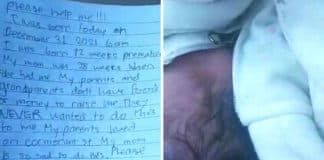 please help me!!!
I was born today on
December 31 2021 6am
I was born 12 weeks premature
My mom was 28 weeks when
she had me My parents and
grandparents dont have
or money to raise me They
NEVER wanted to do this
to me My parents
My mom
is so sad to do this. Please